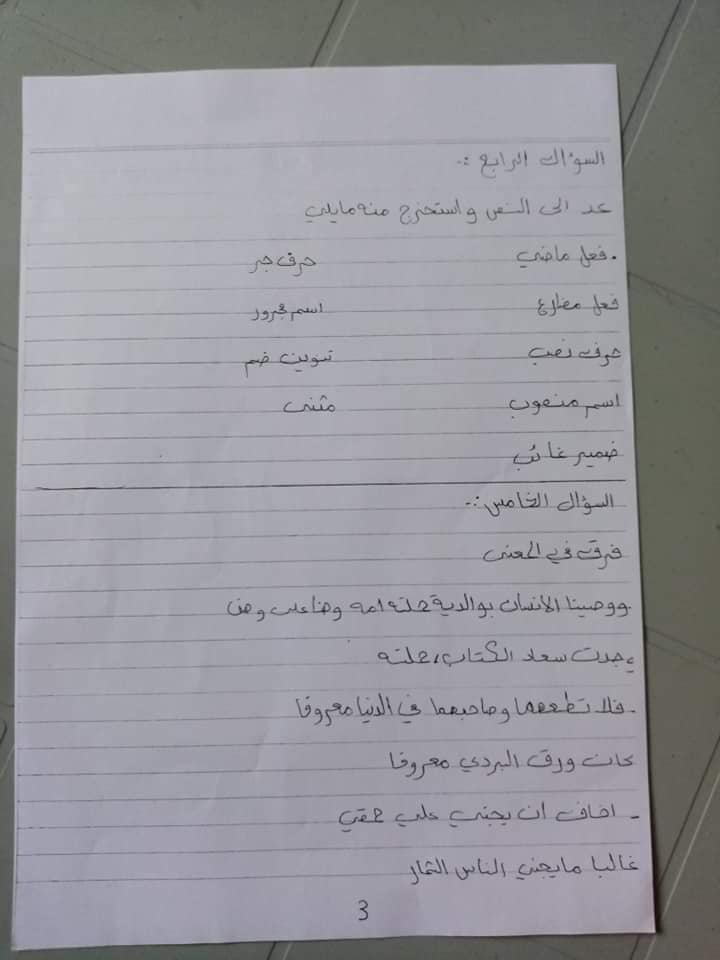 السؤال الرابع :-
عد الى النص واستخرج منه مايلي
. فعل ماضي حرف جر
فعل مضارع اسم مجرور
حرف نصب تنوين ضم
اسم منصوب مثنى
ضمير غائب
السؤال الخامس :-
فرق في المعنى
. ووصينا الانسان بوالدية حملته امه وهنا على وهن
وجدت سعاد الكتاب، حملته
- فلا تطعهما وصاحبهما في الدنيا معروفا
كان ورق البردي معروفا
- اخاف ان يجنى على حقي
غالبا مايجني الناس الثمار
3